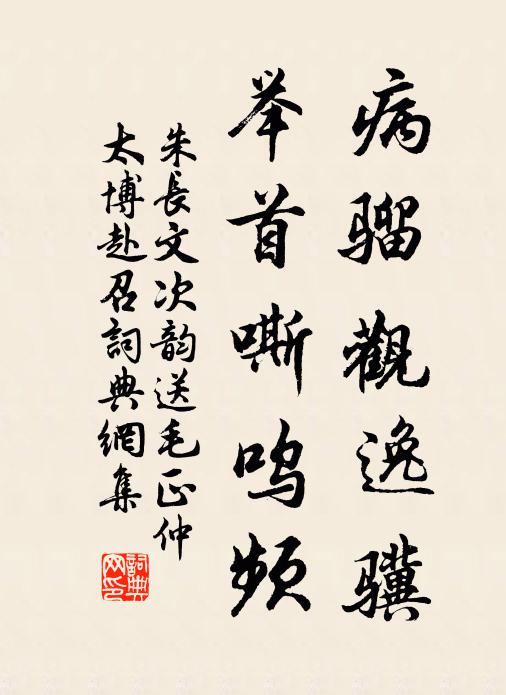 病骝觀逸骥
举首嘶鸣频
朱長文次韵送毛正仲
太博赴召詞典網集
詞典网印